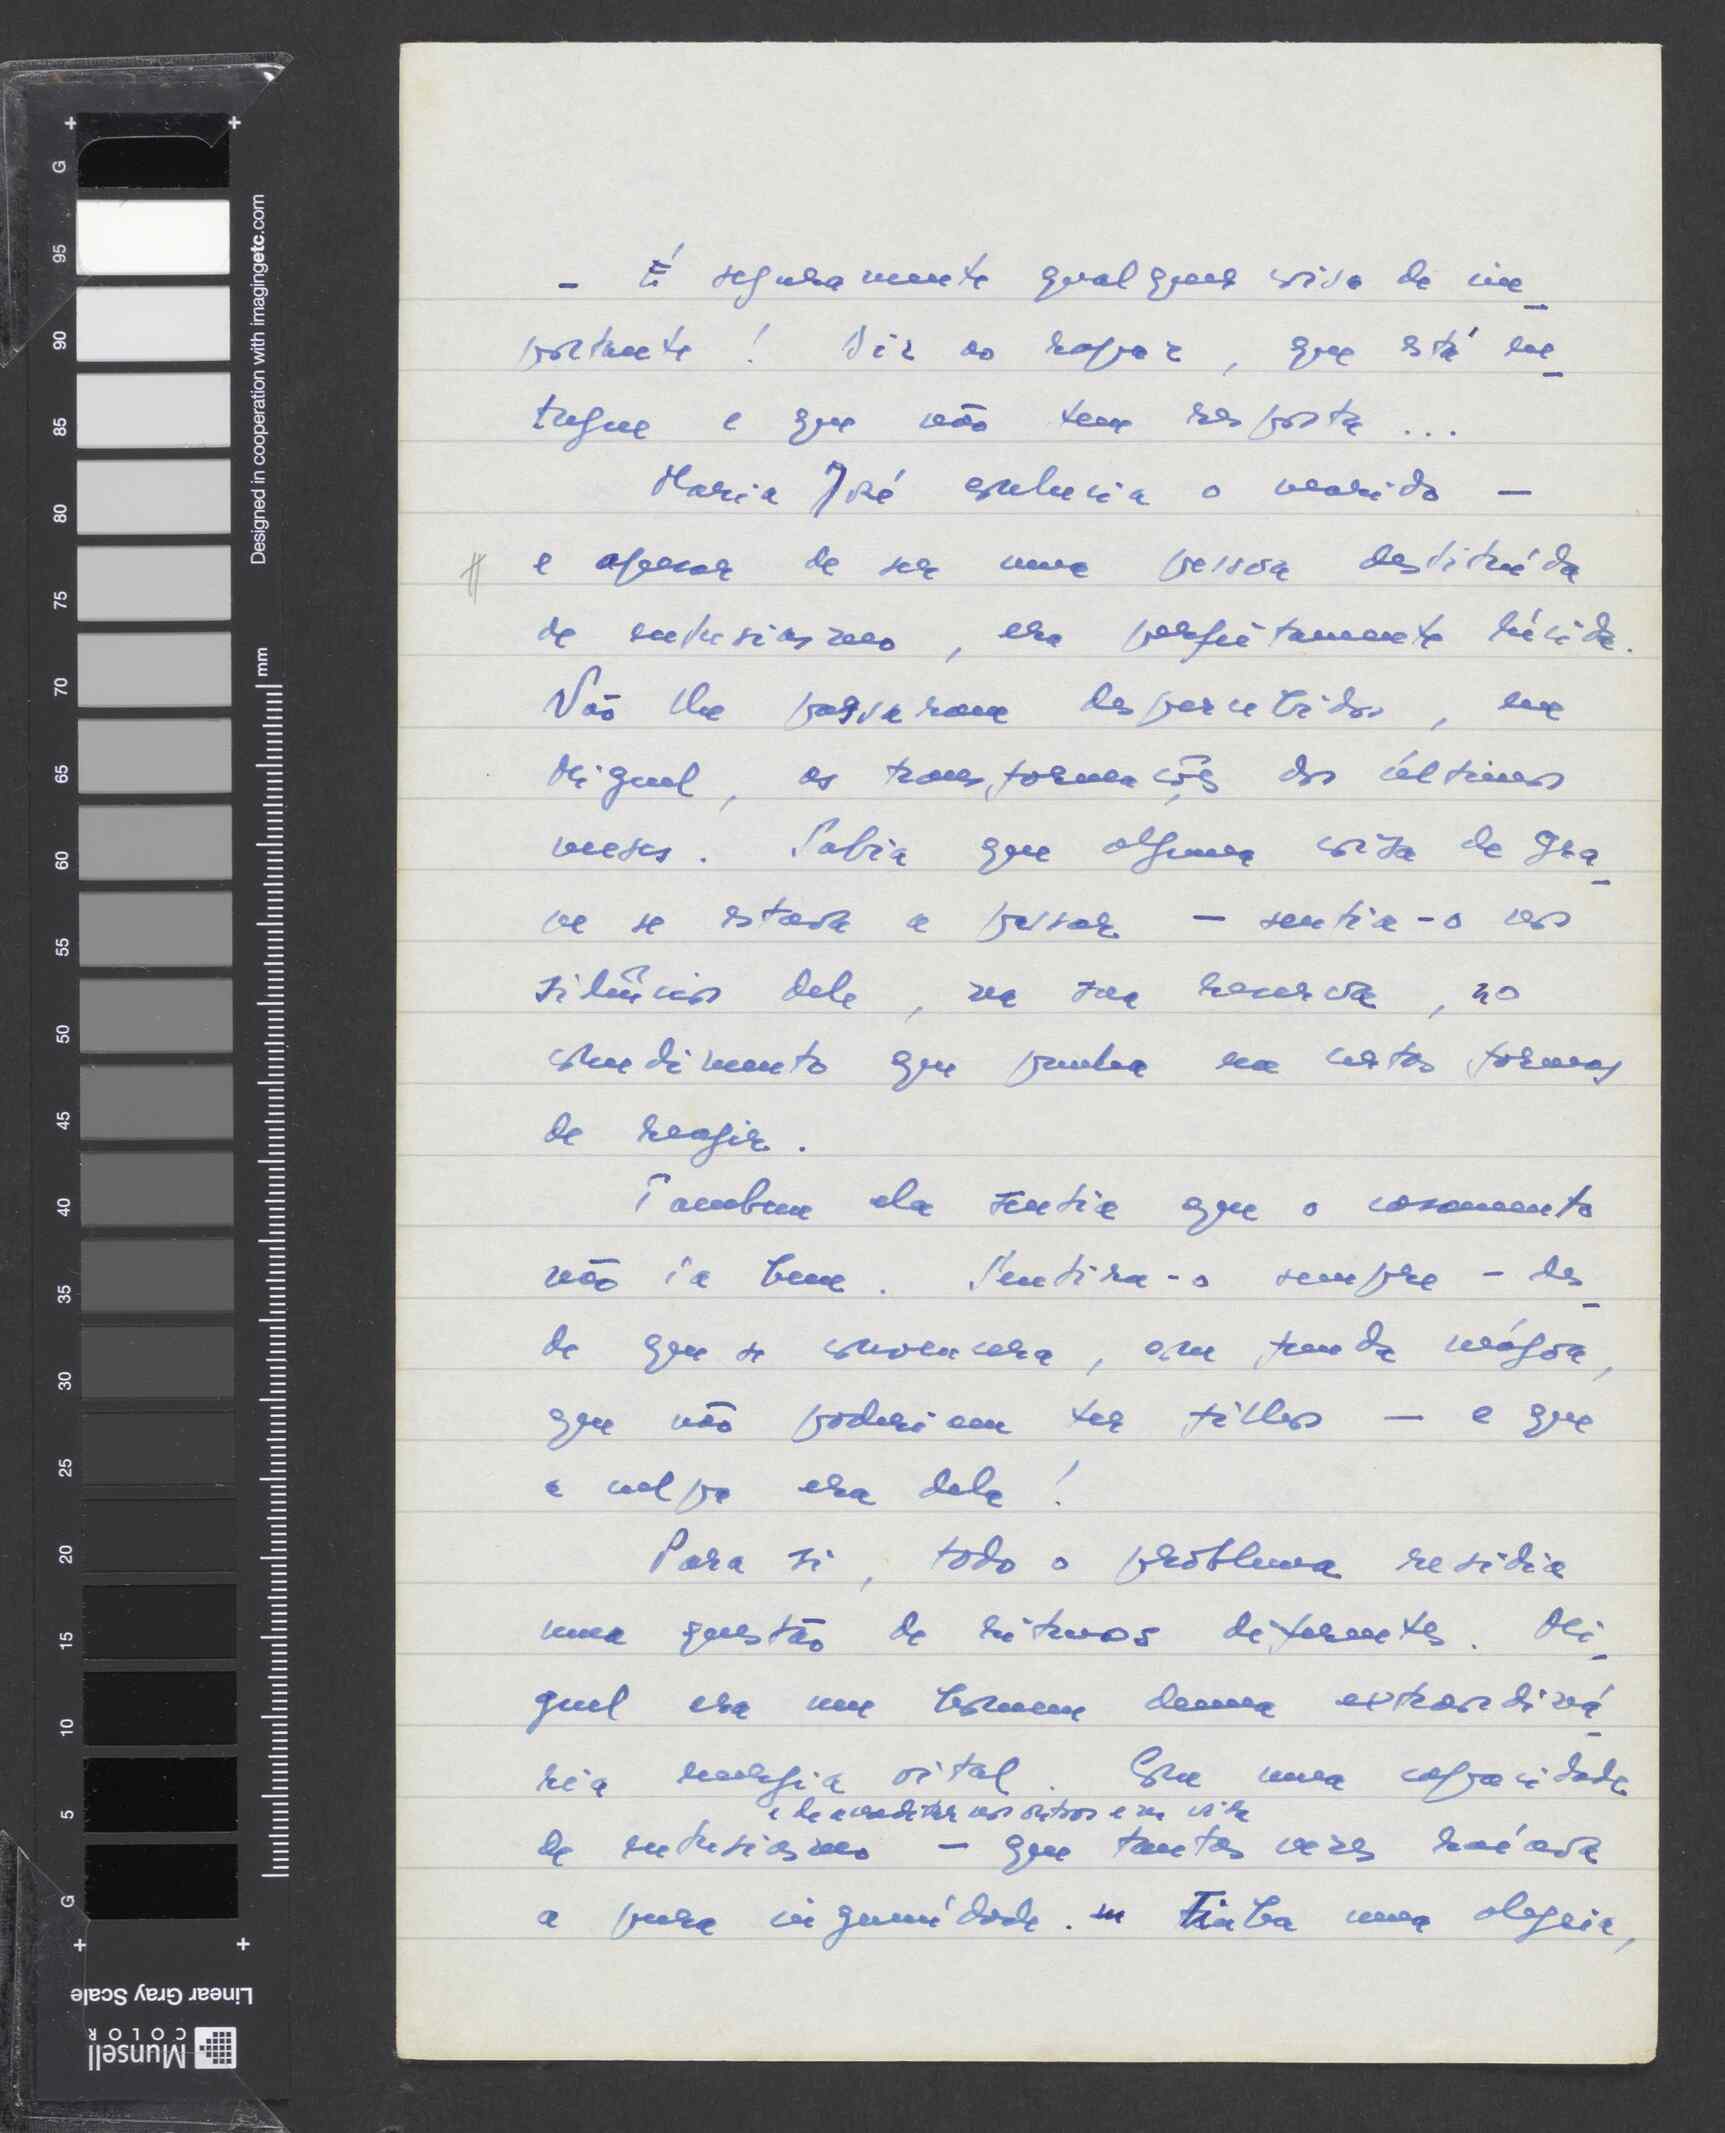 - É seguramente qualquer coisa de im_
portante ! Diz ao rapaz, que está en_
tregue e que não tem resposta ...
Maria José conhecia o marido —
# e apesar de ser uma pessoa destituída
de entusiasmo, era perfeitamente lúcida.
Não lhe passaram despercebidos, em
Miguel, as transformações dos últimos
meses. Sabia que alguma coisa de gra_
ve se estava a passar — sentia-o nos
silêncios dele, na sua reserva, no
comedimento que punha em certas formas
de reagir.
Tambem ela sentia que o casamento
não ia bem. Sentira-o sempre - des_
de que se convencera, com funda mágoa,
que não poderiam ter filhos — e que
a culpa era dela !
Para si, todo o problema residia
numa questão de ritmos diferentes. Mi_
guel era um homem duma extraordiná_
ria energia vital. Era uma capacidade
e de acreditar nos outros e na vida
de entusiasmo — que tantas vezes raiava
a pura ingenuidade. Tinha uma alegria,
G 95 90 85 80 75 70 65 60 55 50 45 40 35 30 25 20 15 10 5 G
Designed in cooperation with imagingetc.com
mm
Linear Gray Scale
Munsell
COLOR